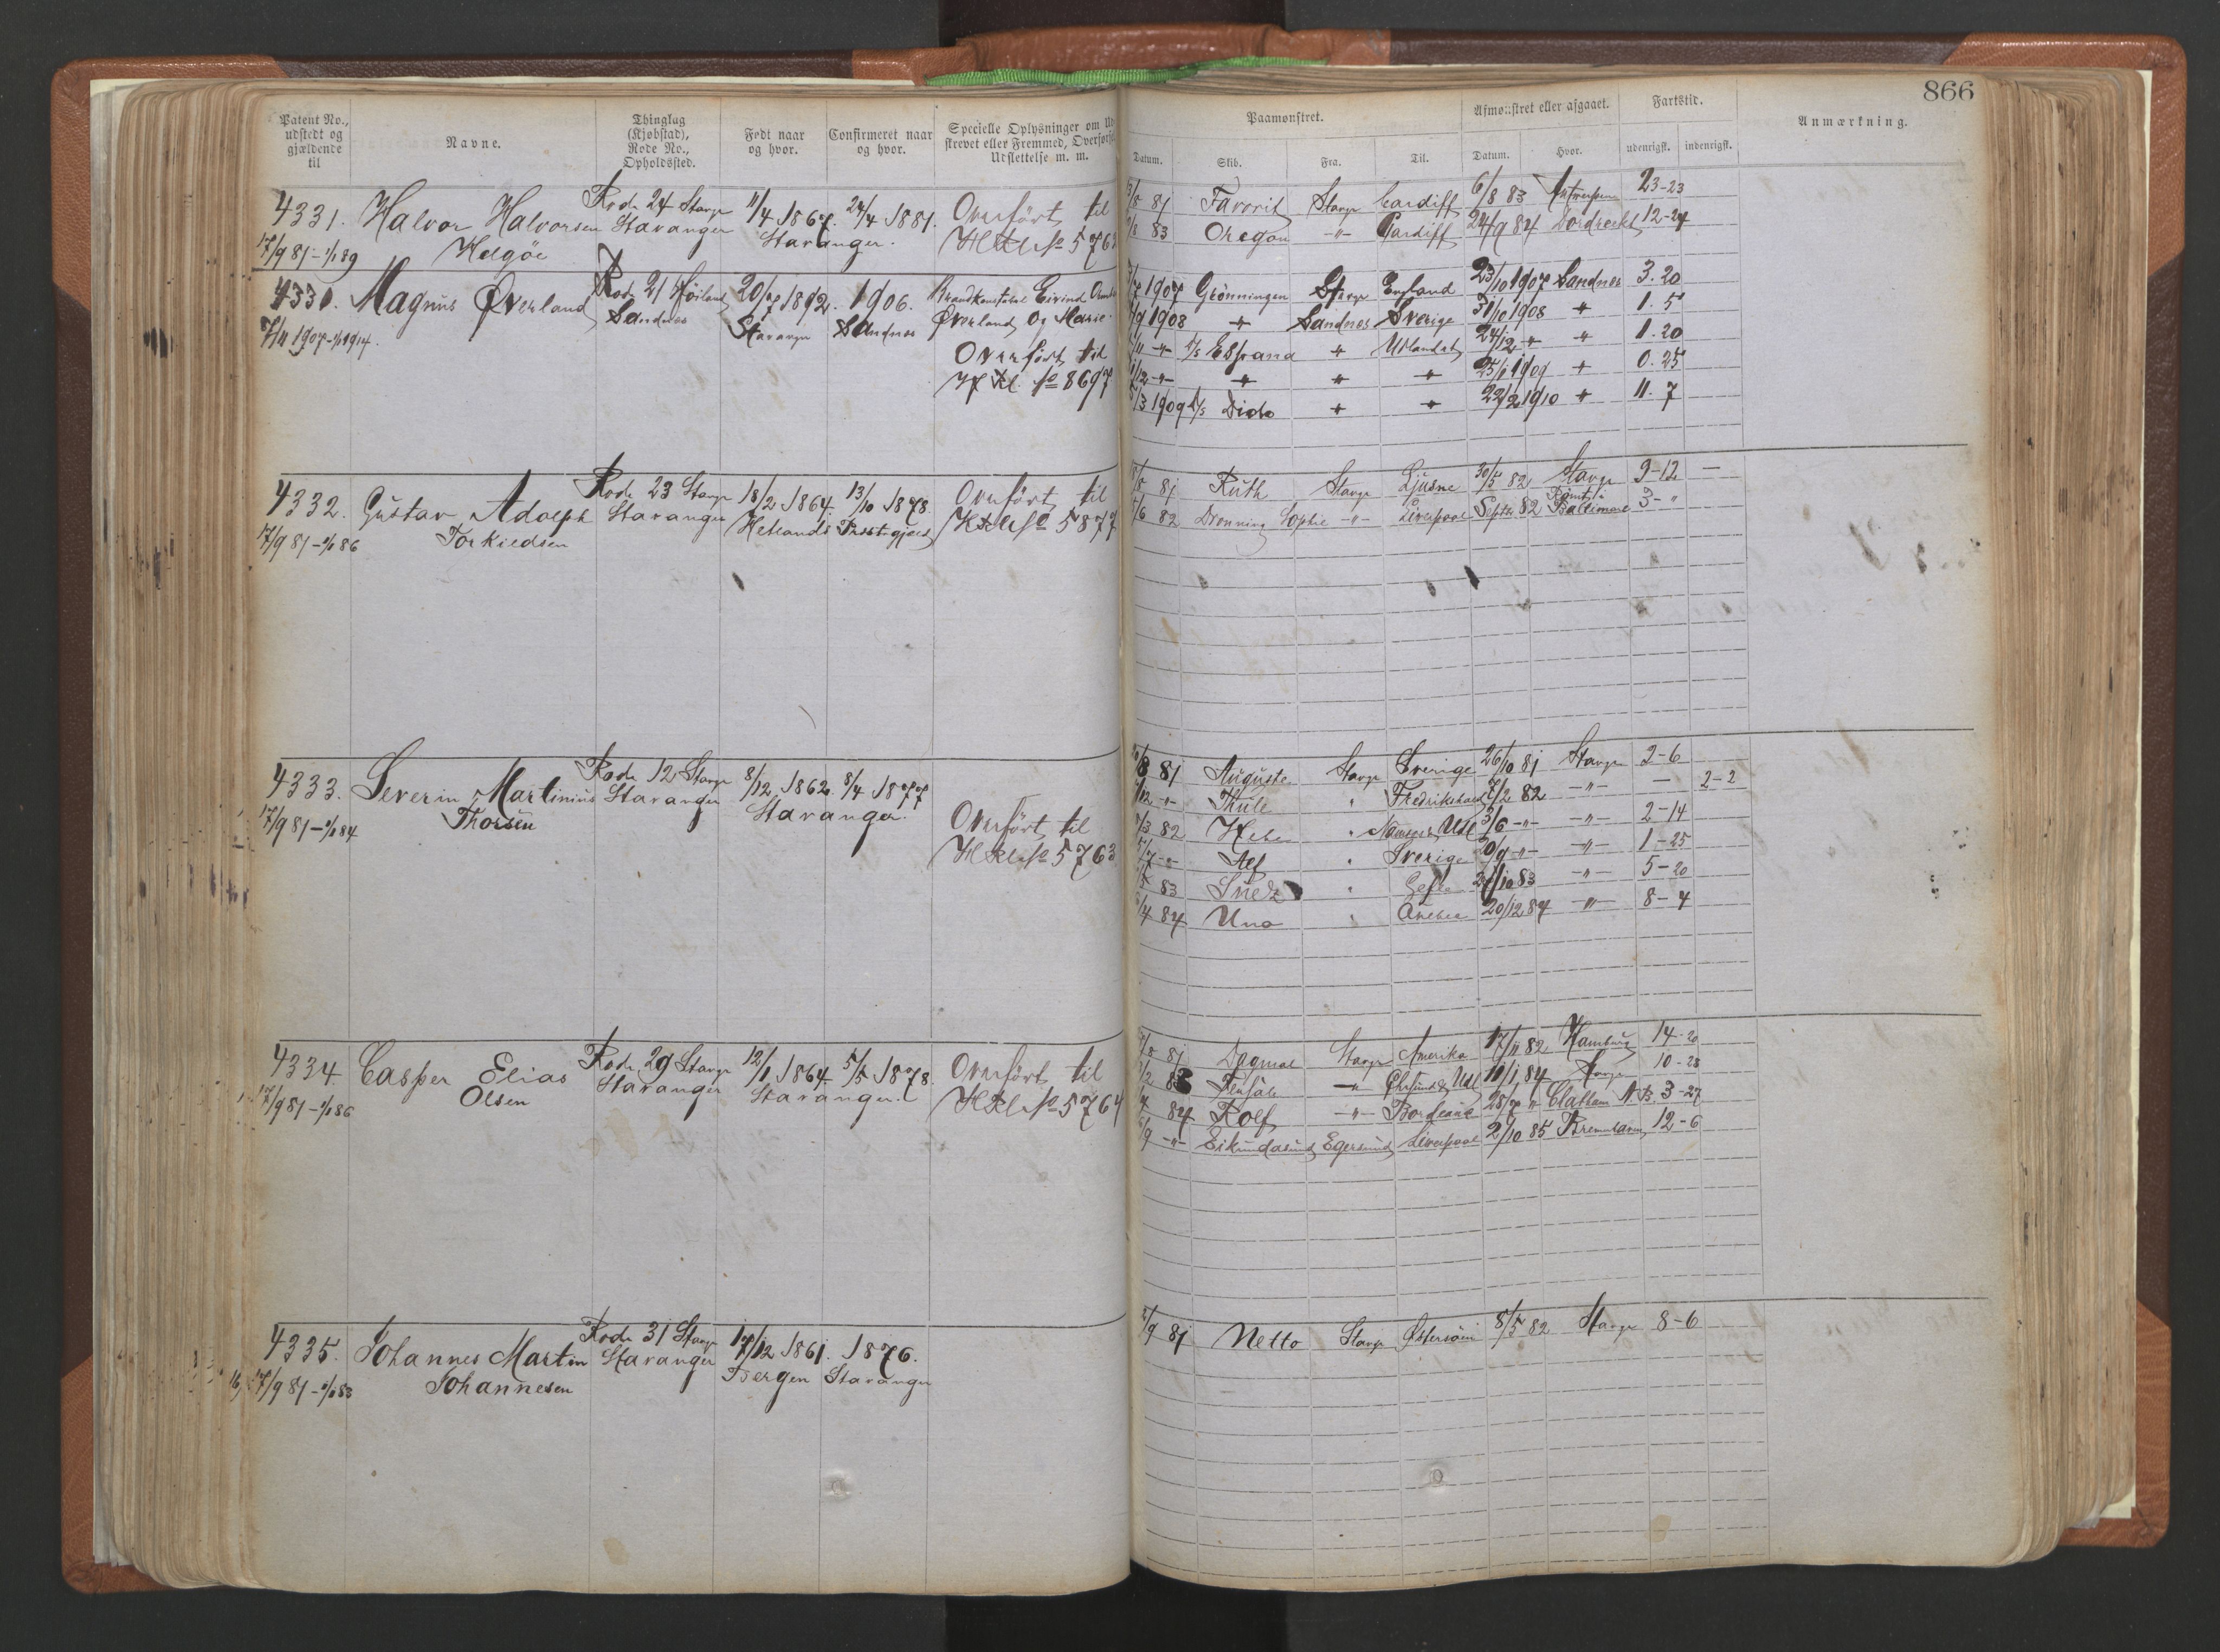 866
Patent No.,
udstedt og
gjældende
til
Navne.
Thinglag
(Kjøbstad),
Rode No.,
Opholdssted.
Født naar
og hvor.
Confirmeret naar
og hvor.
Specielle Oplysninger om
strevet eller Fremmed,
Udslettelse m. m.
Paamønstret.
Afmønstret eller afgaaet.
Fartstid.
Anmærkning.
Datum.
Skib.
Fra.
Til.
Datum.
Hvor.
udenrigsk.
indenrigsk.
4331. Halvor Halvorsen Rode 24 Stavgr 11/4 1867. 24/4 1881. Overført til
17/9 81 - 1/1 89 Helgöe Stavanger Stavanger.
81 Favorit Stavgr Cardiff 6/8 83 Antwerpen 23-23
83 Oregon -"- Cardiff 24/9 84 Dordrecht 12-24
4331. Magnus Øverland Rode 21 Høiland 20/7 1892. 1906. Eivind
7/11 1907 - 1/1 1914. Sandnes Stavanger Sandnes Øverland og Marie.
Overført til
No 8697
1907 Grønningen Stavgr England 23/10 1907 Sandnes 3. 20
1908 " Sandnes Sverige 31/10 1908 " 1. 5
-"- Esprana " Udlandet 24/12 " " 1. 20
-"- " " " 25/1 1909 " 0. 25
3 1909 Dido " " 22/2 1910 " 11. 7
4332. Gustav Adolph Rode 23 Stavgr 18/2 1864. 13/10 1878. Overført til
17/9 81 - 1/1 86 Torkildsen Stavanger Hetlands Præstegjeld No 5877
81 Ruth Stavgr Ljusne 30/5 82 Stavgr 9-12 —
6 82 Dronning Sophie -"- Liverpool Septbr 82 Rømt i Baltimore 3-"
4333. Severin Martinius Rode 12 Stavgr 8/12 1862. 8/4 1877
17/9 81 - 1/1 84 Thorsen Stavanger Stavanger.
Overført til
No 5763
81 Auguste Stavgr Sverige 26/10 81 Stavgr 2-6
12 -"- Thule " Fredrikshald 7/2 82 -"- — 2-2
3 82 Hebe " Namsos & Udl 3/6 -"- -"- 2-14
-"- Alf " Sverige 20/9 -"- -"- 1-25
83 " Gefle 24/10 83 -"- 5-20
4 84 Uno " 20/12 84 -"- 8-4
4334 Casper Elias Rode 29 Stavgr 12/1 1864. 5/5 1878. Overført til
17/9 81 - 1/1 86 Olsen Stavanger Stavanger. No 5764
81 Dagmar Stavgr Amerika 17/11 82 Hamburg 14-20
-"- 11/1 84 Stavgr 10-28
84 Rolf -"- Bordeaux 28/7 " Chatham N.B. 3-27
9 -"- Eikundasund Egersund Liverpool 2/10 85 12-6
4335. Johannes Martin Rode 31 Stavgr 17/12 1861. 1876.
17/9 81 - 1/1 83 Johannesen Stavanger Bergen Stavanger
9 81 Netto Stavgr Østersøen 8/5 82 Stavgr 8-6